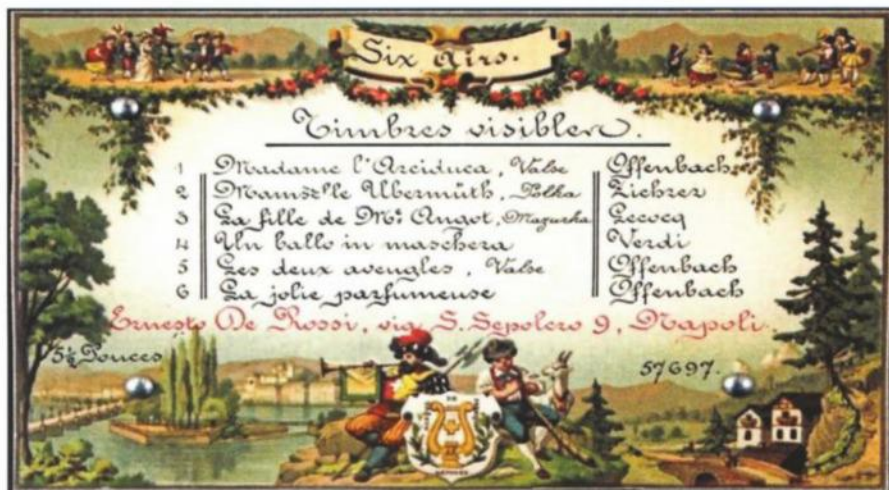 Six Airs.
Timbres visibles.
1 Madame l'Arciduca, Valse Offenbach
2 Mamszlle Ubermüth, Polka Zichrer
3 La fille de Mme Angot, Mazurka Lecocq
4 Un ballo in maschera Verdi
5 Les deux aveugles, Valse Offenbach
6 La jolie parfumeuse Offenbach
Ernesto De Rossi, via S. Sepolcro 9, Napoli.
5½ Pouces
57697.